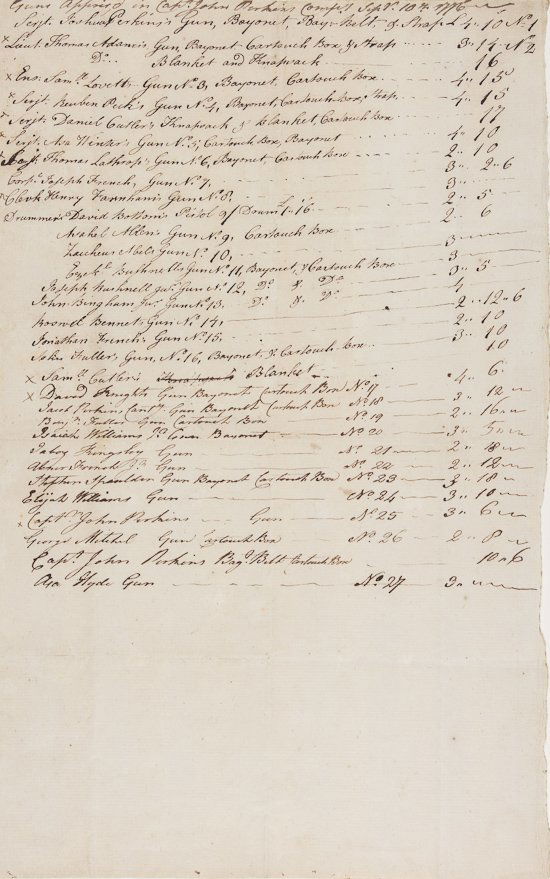 Guns Apprisd in Capt. John Perkins Compy Sept. 10th 1776
Serjt. Joshua Perkins's Gun, Bayonet, Bay. Belt & Strap £ 4 .. 10 No. 1
x Lieut. Thomas Adams's Gun, Bayonet Cartouch Box, & Strap 3 .. 14 No. 2
Do. Blanket and Knapsack 16
x Ens. Saml. Lovett's Gun No. 3, Bayonet, Cartouch Box 4 .. 15
x Serjt. Reuben Peck's Gun No. 4, Bayonet, Cartouch Box, Strap 4 .. 15
x Serjt. Daniel Cutler's Knapsack & Blanket, Cartouch Box 17
x Serjt. Asa Winter's Gun No. 5, Cartouch Box, Bayonet 4 .. 10
Thomas Lathrop's Gun No. 6, Bayonet, Cartouch Box 2 .. 10
Corpl. Joseph French, Gun No. 7, 3 .. 2 .. 6
x Clerk Henry Farnham's Gun No. 8, 3 ..
Drummer David Bottom's Pistol & Drum £ .. 16 2 .. 5
Asahel Allen's Gun No. 9, Cartouch Box 2 .. 6
Zacheus Abel's Gun No. 10, 3
Ezekl. Bushnell's Gun No. 11, Bayonet, & Cartouch Box 3
Joseph Bushnell Gun No. 12, Do. & Do. 3 .. 5
John Bingham Junr. Gun No. 13, Do. & Do. 4
Roswel Bennet's Gun No. 14, 2 .. 12 .. 6
Jonathan French's Gun No. 15, 2 .. 10
John Fuller's Gun, No. 16, Bayonet, & Cartouch Box 3 .. 10
x Saml. Cutler's Blanket 10
x David Knights Gun Bayonet Cartouch Box No. 17 4 .. 6
Jacob Perkins Gun Bayonet Cartouch Box No. 18 3 .. 12
Benjn. Fuller Gun Cartouch Box No. 19 2 .. 16
Isaiah Williams Jr. Gun Bayonet No. 20 3 .. 5
Jabez Kingsley Gun No. 21 2 .. 18
Abner French Jr. Gun No. 22 2 .. 12
Stephen Spaulden Gun Bayonet Cartouch Box No. 23 3 .. 18
Elijah Williams Gun No. 24 3 .. 10
x Capt. John Perkins Gun No. 25 3 .. 6
George Mitchel Gun Cartouch Box No. 26 2 .. 8
Capt. John Perkins Bay. Belt Cartouch Box 10 .. 6
Asa Hyde Gun No. 27 3 ..